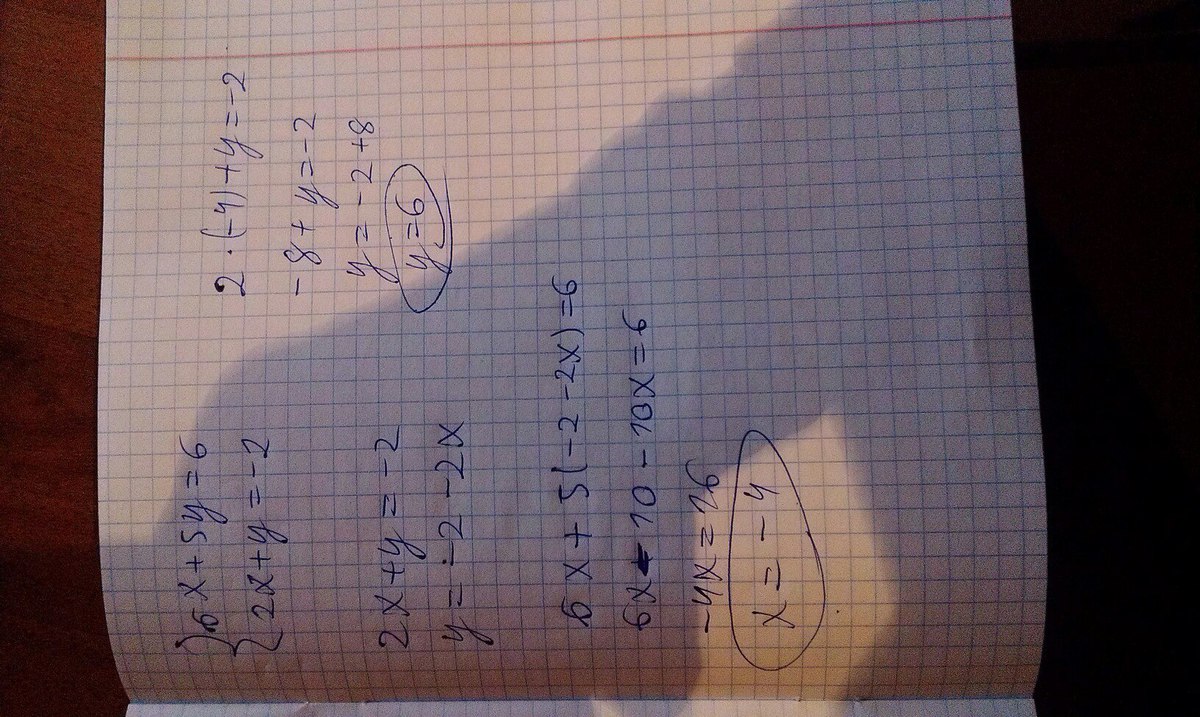 6x + 5y = 6
2x + y = -2
2x + y = -2
y = -2 - 2x
6x + 5(-2 - 2x) = 6
6x - 10 - 10x = 6
-4x = 16
x = -4
2 · (-4) + y = -2
-8 + y = -2
y = -2 + 8
y = 6